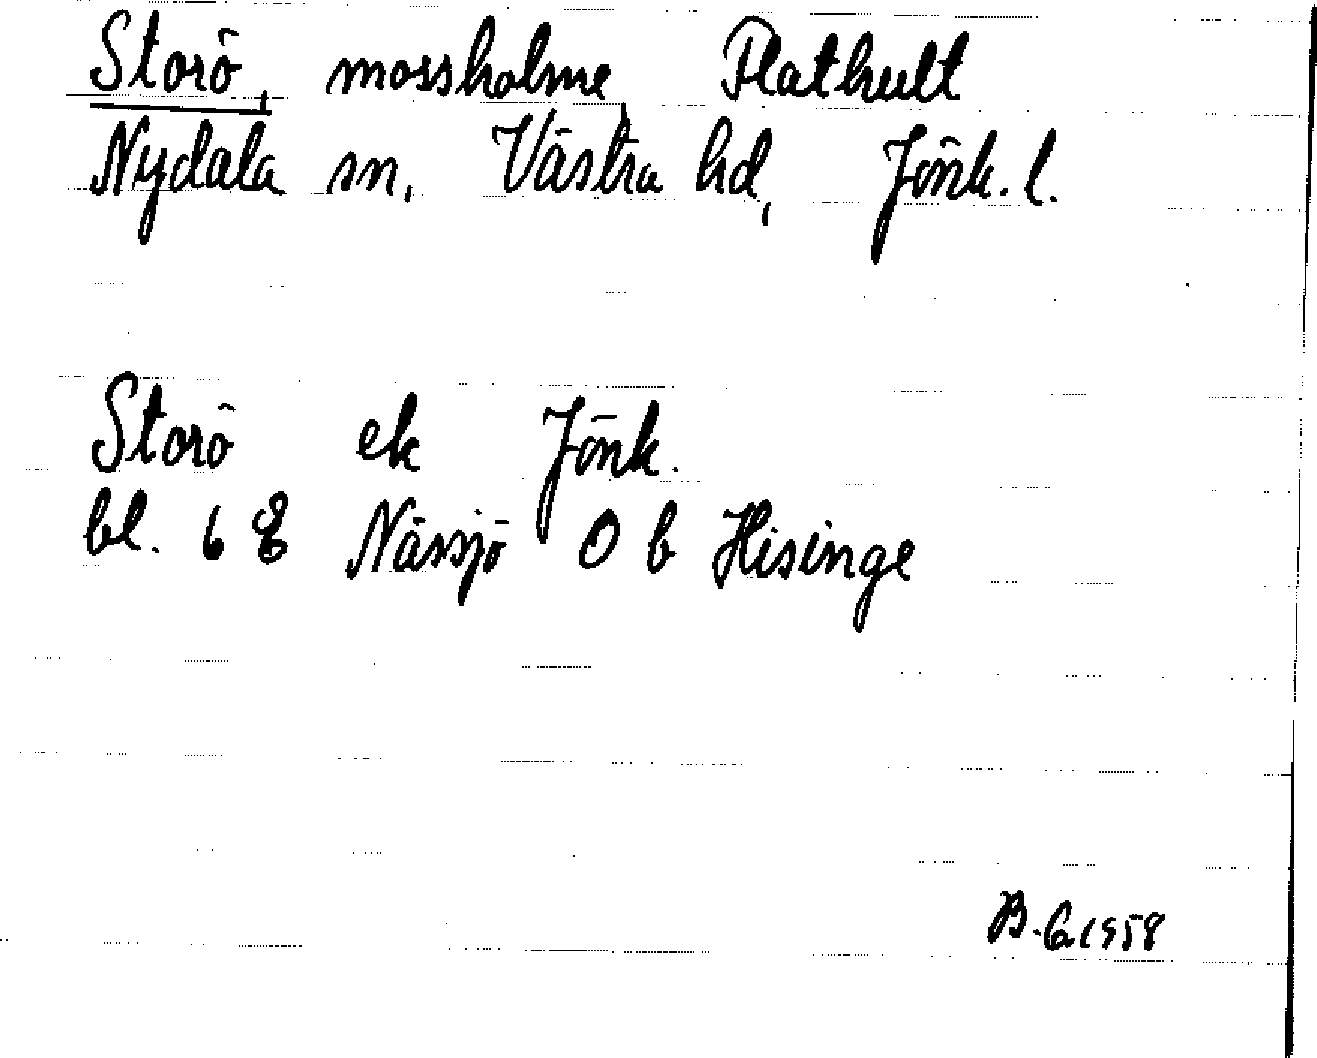 Storö, mossholme, Flathult
Nydala sn, Västra hd, Jönk. l.
Storö ek Jönk.
bl. 68 Nässjö O b Hisinge
B. G. 1958